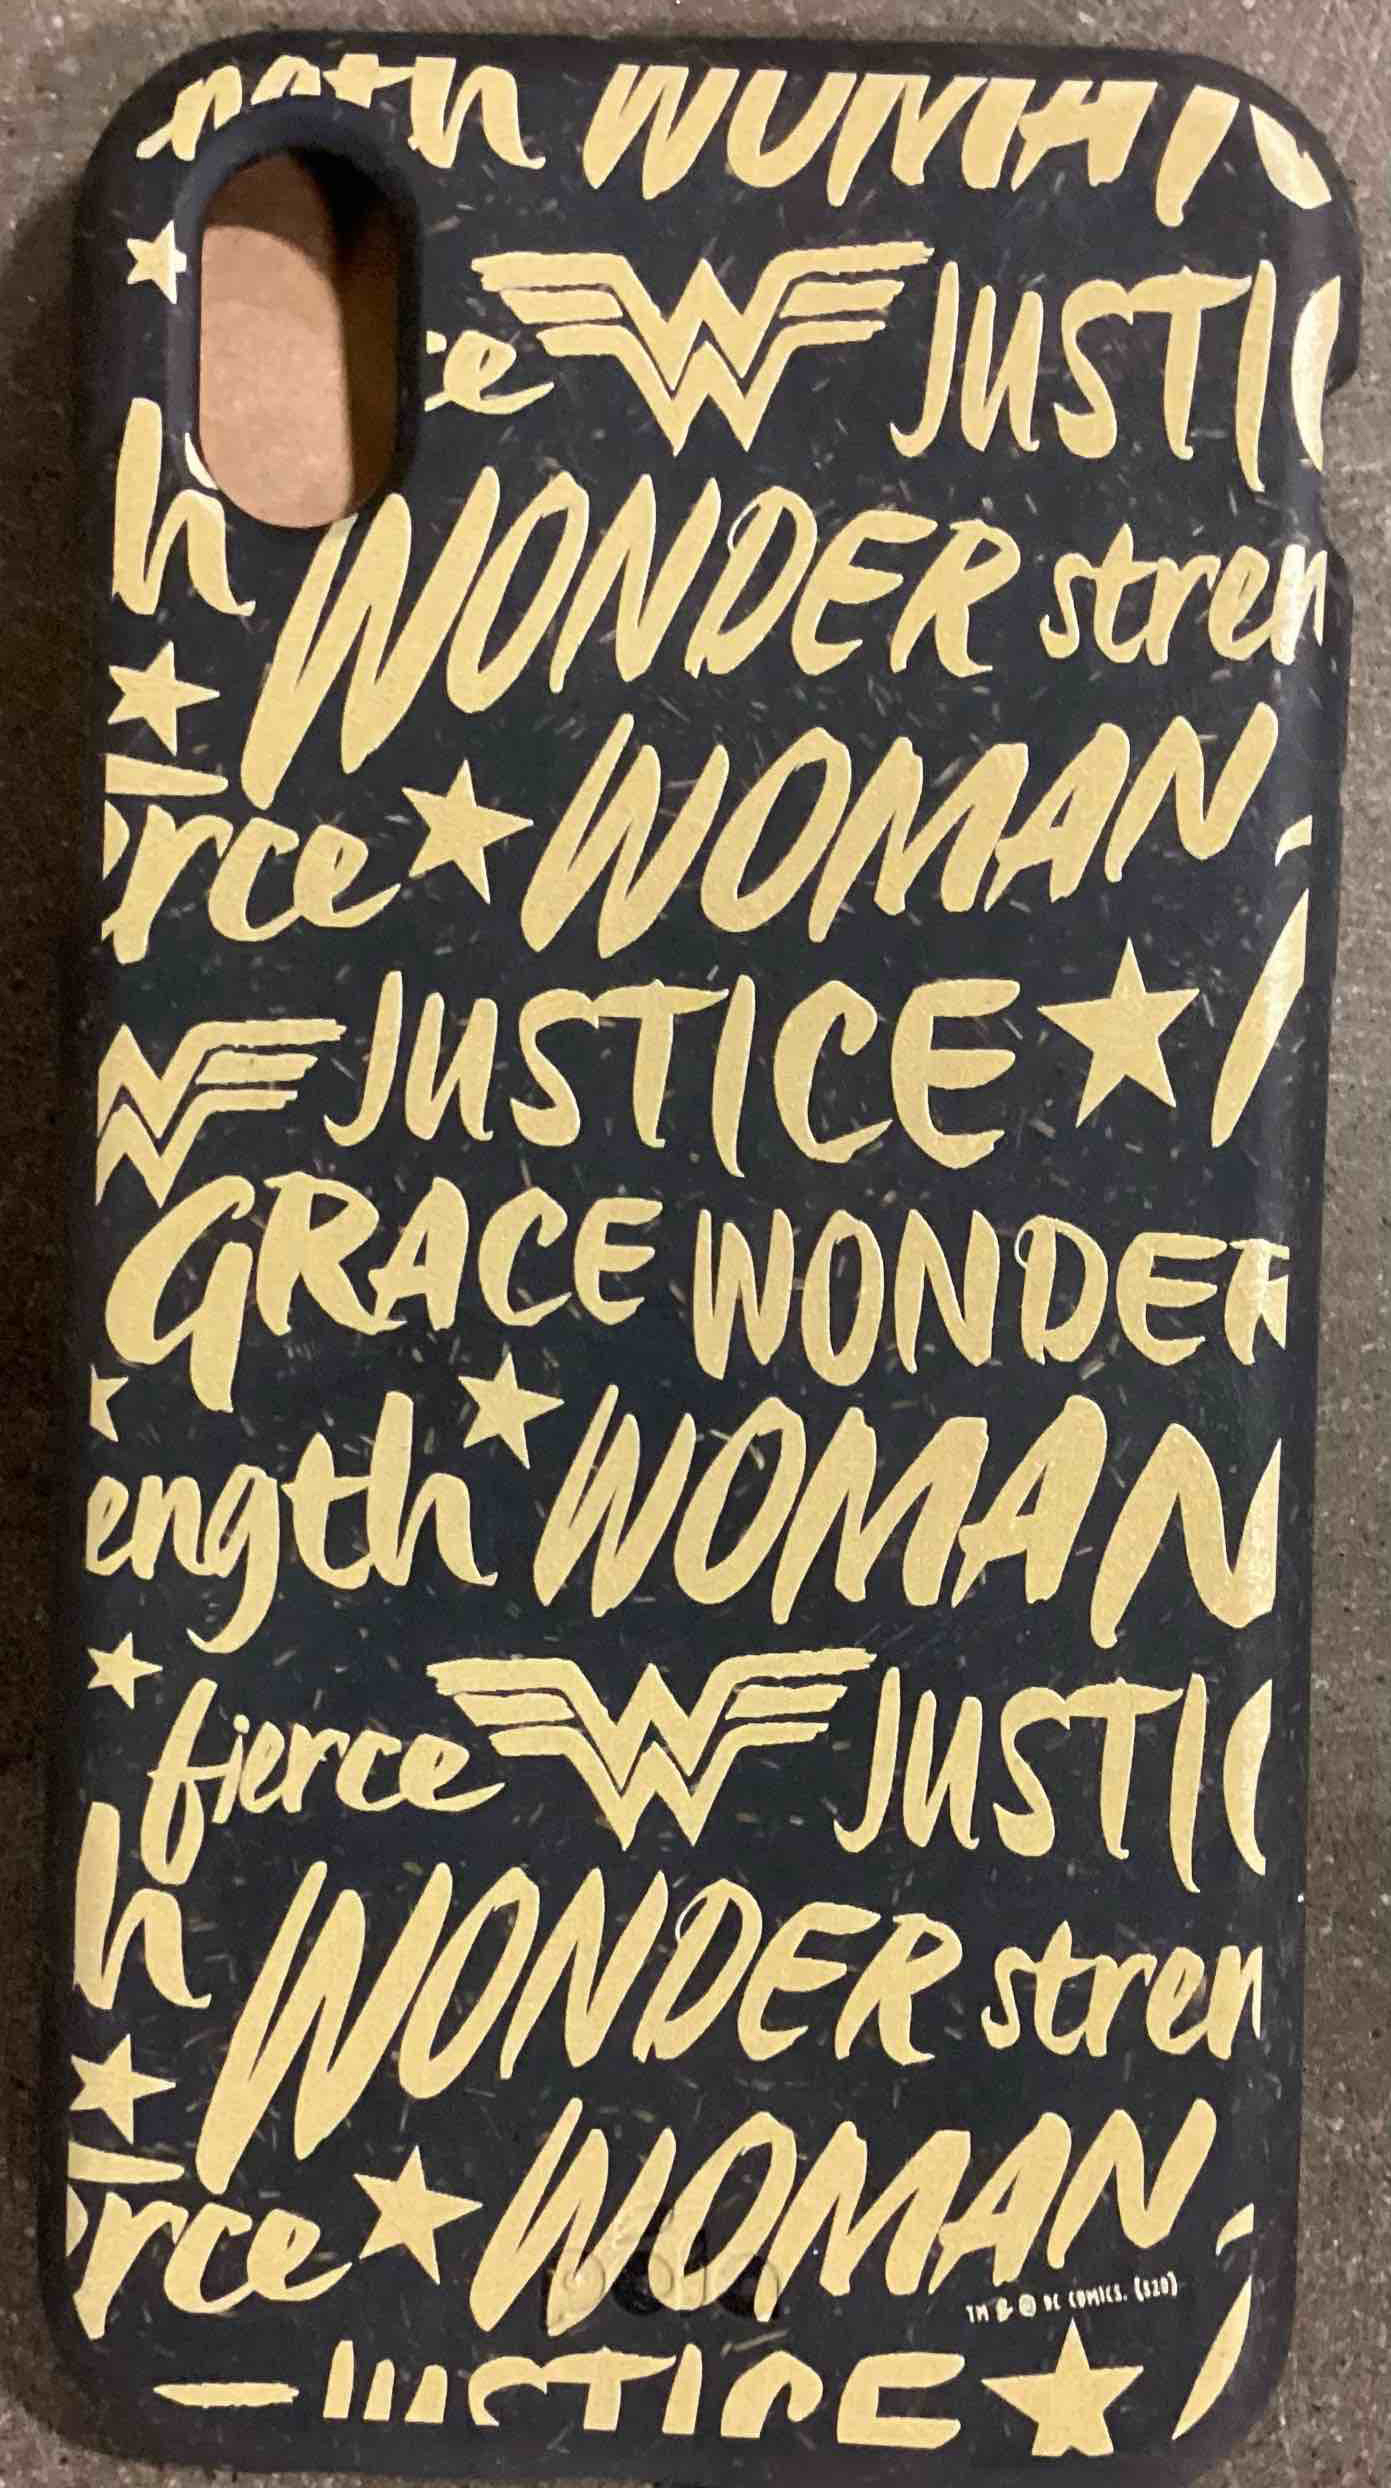 ngth WOMAN
ce JUSTIC
h WONDER stren
erce WOMAN
JUSTICE
GRACE WONDER
ength WOMAN
fierce JUSTIC
h WONDER stren
erce WOMAN
pela
TM & © DC COMICS. (S20)
JUSTICE